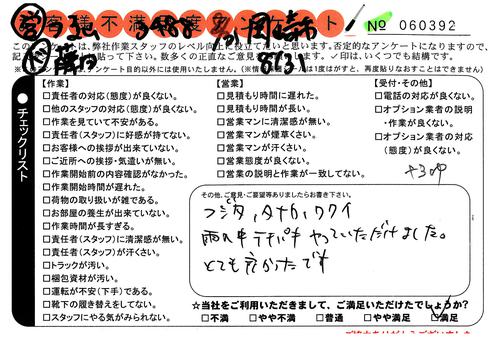 お客様不満足度アンケート
№ 060392
8/31
このアンケートは、弊社作業スタッフのレベル向上に役立てたいと思います。否定的なアンケートになりますので、
チェックリスト
【作業】
□責任者の対応(態度)が良くない。
□他のスタッフの対応(態度)が良くない。
□作業を見ていて不安がある。
□責任者(スタッフ)に好感が持てない。
□お客様への挨拶が出来ていない。
□ご近所への挨拶・気遣いが無い。
□作業開始前の内容確認がなかった。
□作業開始時間が遅れた。
□荷物の取り扱いが雑である。
□お部屋の養生が出来ていない。
□作業時間が長すぎる。
□責任者(スタッフ)に清潔感が無い。
□責任者(スタッフ)が汗くさい。
□トラックが汚い。
□梱包資材が汚い。
□運転が不安(下手)である。
□靴下の履き替えをしてない。
□スタッフにやる気がみられない。
【営業】
□見積もり時間に遅れた。
□見積もり時間が長い。
□営業マンに清潔感が無い。
□営業マンが煙草くさい。
□営業マンが汗くさい。
□営業態度が良くない。
□営業の説明と作業が一致してない。
【受付・その他】
□電話の対応が良くない。
□オプション業者の説明
・作業が良くない。
□オプション業者の対応
(態度)が良くない。
その他、ご意見・ご要望等ありましたらお書き下さい。
フジタ、タナカ、ワクイ
雨の中テキパキやっていただけました。
とても良かったです
☆当社をご利用いただきまして、ご満足いただけたでしょうか?
□不満 □やや不満 □普通 □やや満足 □満足